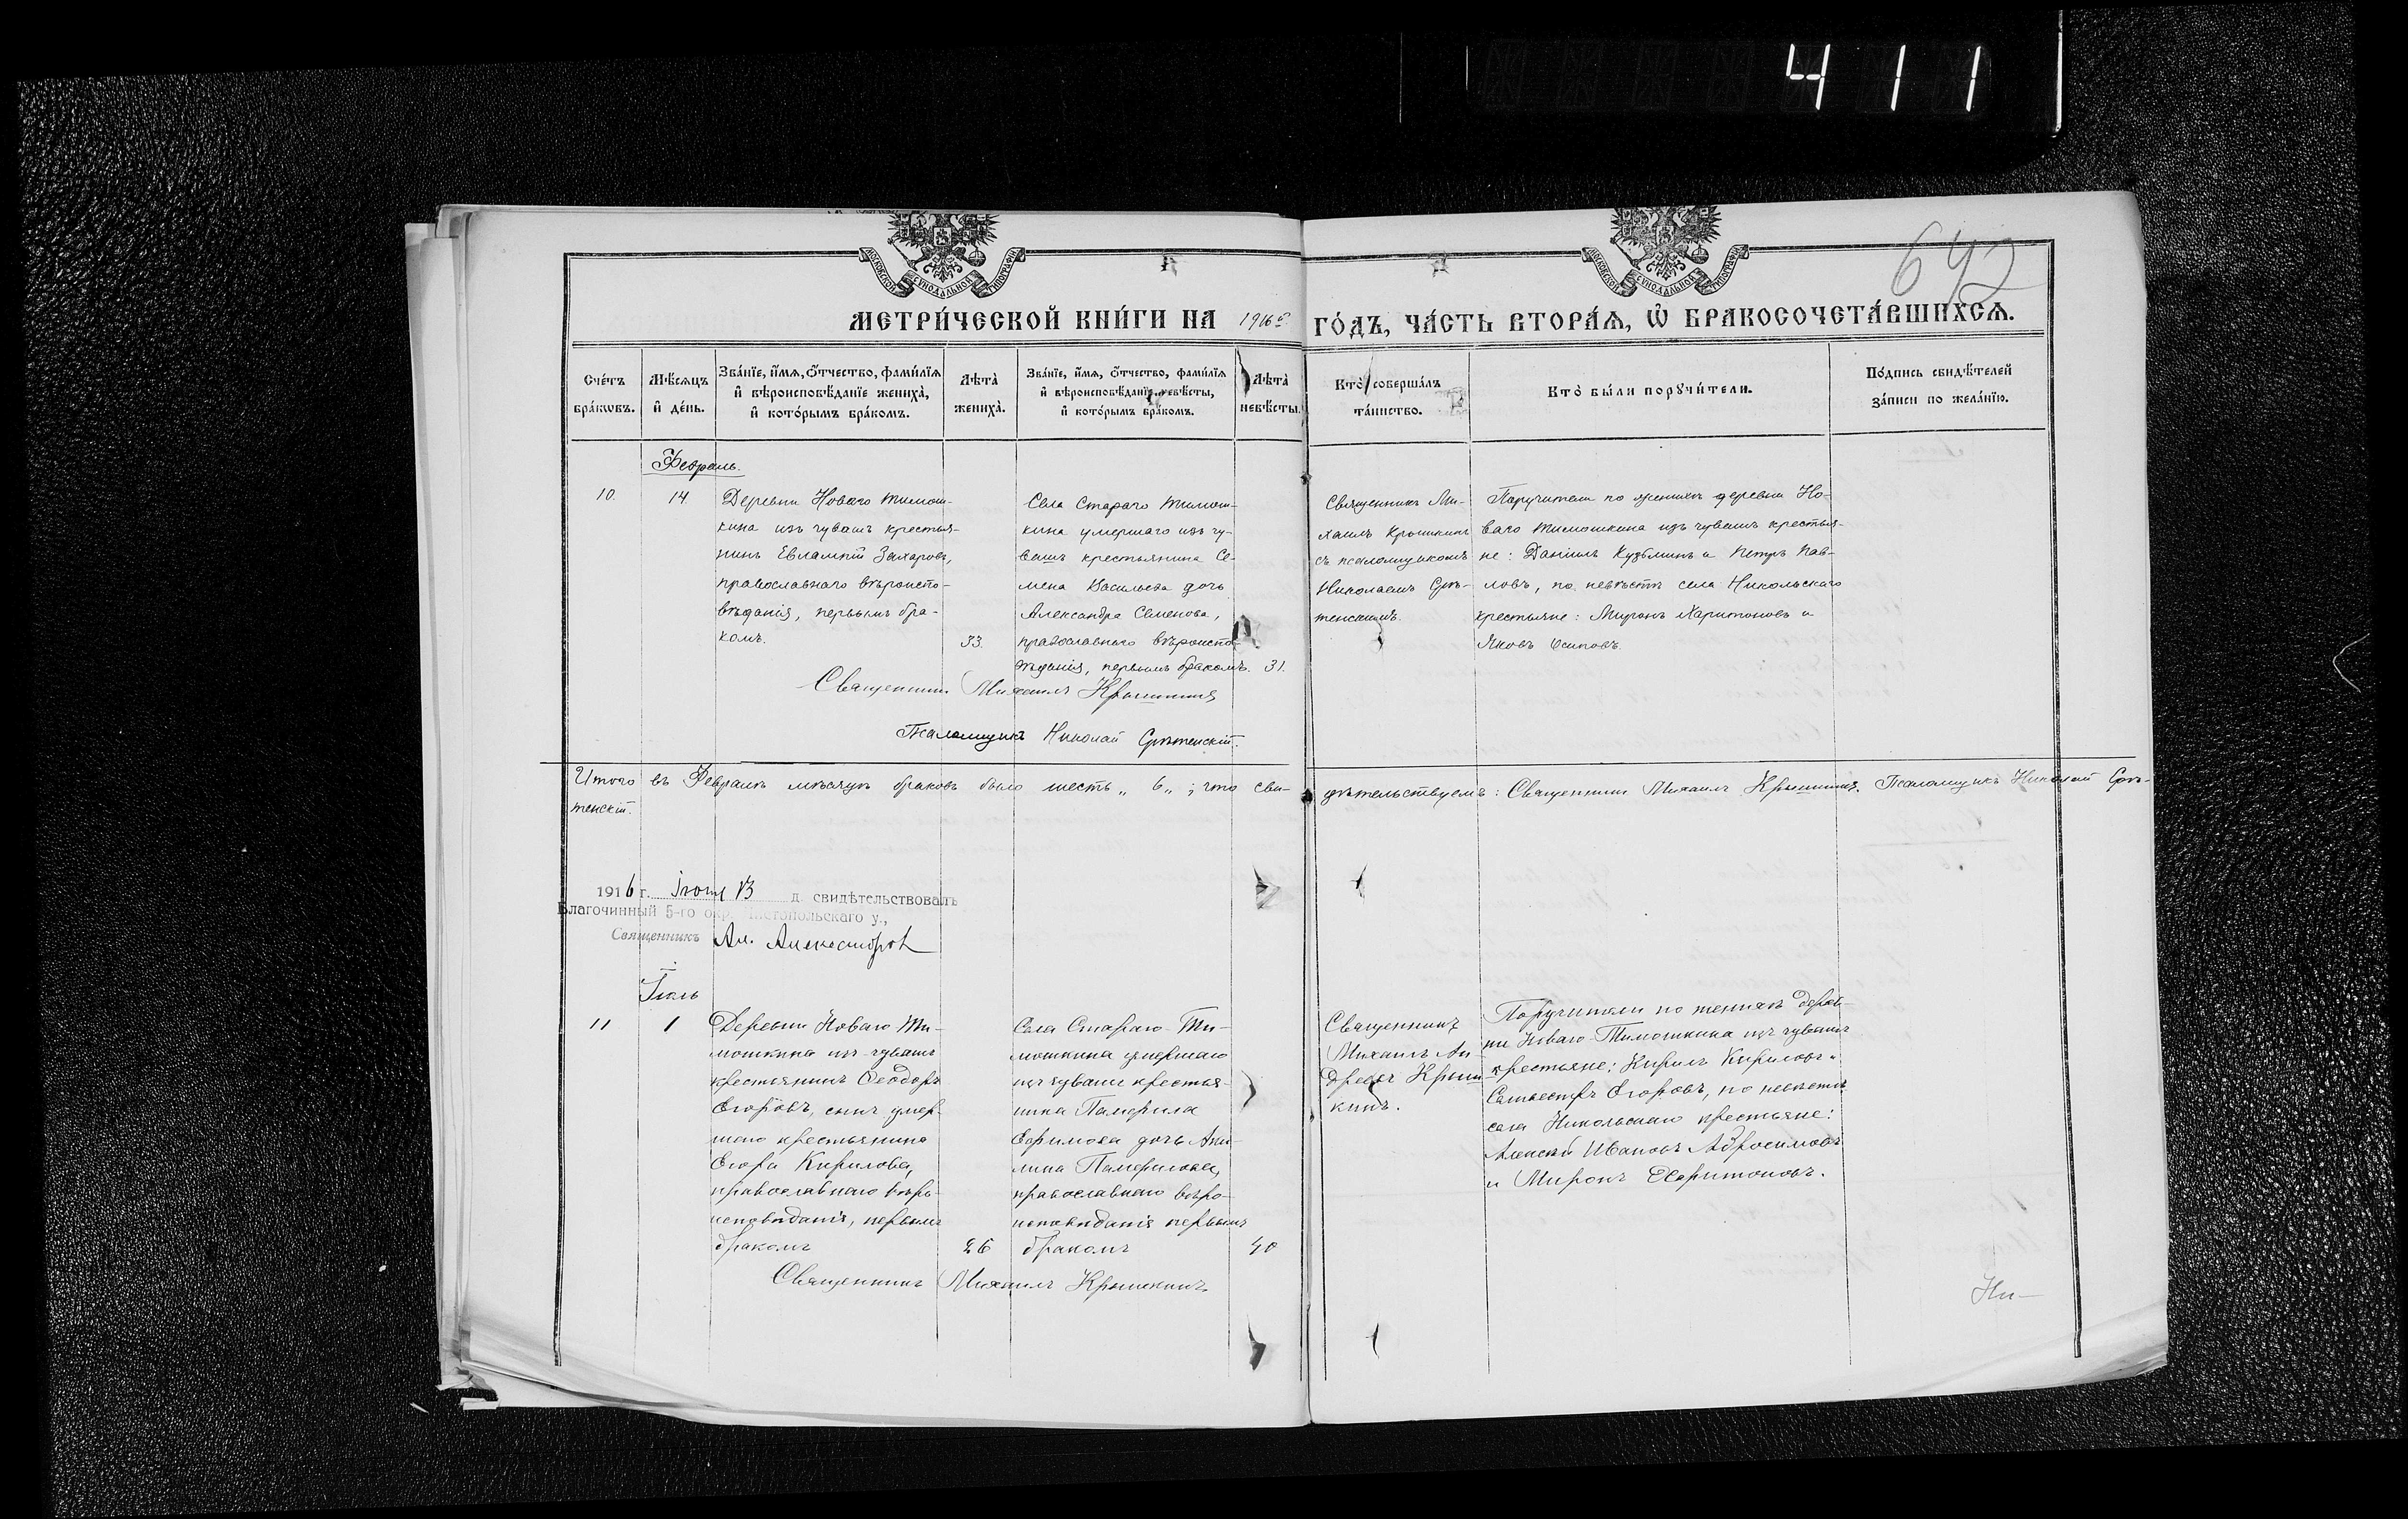 411
642
МОСКОВСКОЙ СѴНОДАЛЬНОЙ ТИПОГРАФІИ
МОСКОВСКОЙ СѴНОДАЛЬНОЙ ТИПОГРАФІИ
МЕТРИ́ЧЕСКОЙ КНИ́ГИ НА 1916й ГО́ДЪ, ЧА́СТЬ ВТОРА́Ѧ, Ѡ҆ БРАКОСОЧЕТА́ВШИХСѦ.
Сче́тъ бра́кѡвъ.
Мѣ́сѧцъ и҆ де́нь.
Зва́нїе, и҆́мѧ, ѻ҆́тчество, фами́лїѧ и҆ вѣроисповѣ́данїе жениха̀, и҆ кото́рымъ бра́комъ.
Лѣта̀ жениха̀.
Зва́нїе, и҆́мѧ, ѻ҆́тчество, фами́лїѧ и҆ вѣроисповѣ́данїе невѣ́сты, и҆ кото́рымъ бра́комъ.
Лѣта̀ невѣ́сты.
Кто̀ соверша́лъ та́инство.
Кто̀ бы́ли порꙋчи́тели.
По́дпись свидѣ́телей за́писи по жела́нїю.
Февраль.
10.
14
Деревни Новаго Тимош-
кина изъ чувашъ крестья-
нинъ Евлампій Захаровъ,
православнаго вѣроиспо-
вѣданія, первымъ бра-
комъ.
33.
Села Стараго Тимош-
кина умершаго изъ чу-
вашъ крестьянина Се-
мена Васильева дочь
Александра Семенова,
православнаго вѣроиспо-
вѣданія, первымъ бракомъ.
31.
Священникъ Ми-
хаилъ Крышкинъ
съ псаломщикомъ
Николаемъ Срѣ-
тенскимъ.
Поручители по женихѣ деревни Но-
ваго Тимошкина изъ чувашъ крестья-
не: Даніилъ Кузьминъ и Петръ Пав-
ловъ, по невѣстѣ села Никольскаго
крестьяне: Миронъ Харитоновъ и
Яковъ Осиповъ.
Священникъ Михаилъ Крышкинъ
Псаломщикъ Николай Срѣтенскій.
Итого въ Февралѣ мѣсяцѣ браковъ было шесть „6„; что сви-
дѣтельствуемъ: Священникъ Михаилъ Крышкинъ. Псаломщикъ Николай Срѣ-
тенскій.
1916 г. Іюня 13 д. свидѣтельствовалъ
Благочинный 5-го окр. Чистопольскаго у.,
Священникъ Ал. Александров
Іюль
11
1
Деревни Новаго Ти-
мошкина изъ чувашъ
крестьянинъ Ѳеодоръ
Егоровъ, сынъ умер-
шаго крестьянина
Егора Кирилова,
православнаго вѣро-
исповѣданія, первымъ
бракомъ
26
Села Стараго Ти-
мошкина умершаго
изъ чувашъ крестья-
нина Памфила
Ефимова дочь Аки-
лина Памфилова,
православнаго вѣро-
исповѣданія первымъ
бракомъ
Священникъ
Михаилъ Ан-
дреевъ Крыш-
кинъ.
Поручители по женихѣ дерев-
ни Новаго Тимошкина изъ чувашъ
крестьяне: Кирилъ Кириловъ и
Сильвестръ Егоровъ, по невѣстѣ
села Никольскаго крестьяне:
Алексѣй Ивановъ Абросимовъ
и Миронъ Харитоновъ.
Священникъ Михаилъ Крышкинъ
Ни-